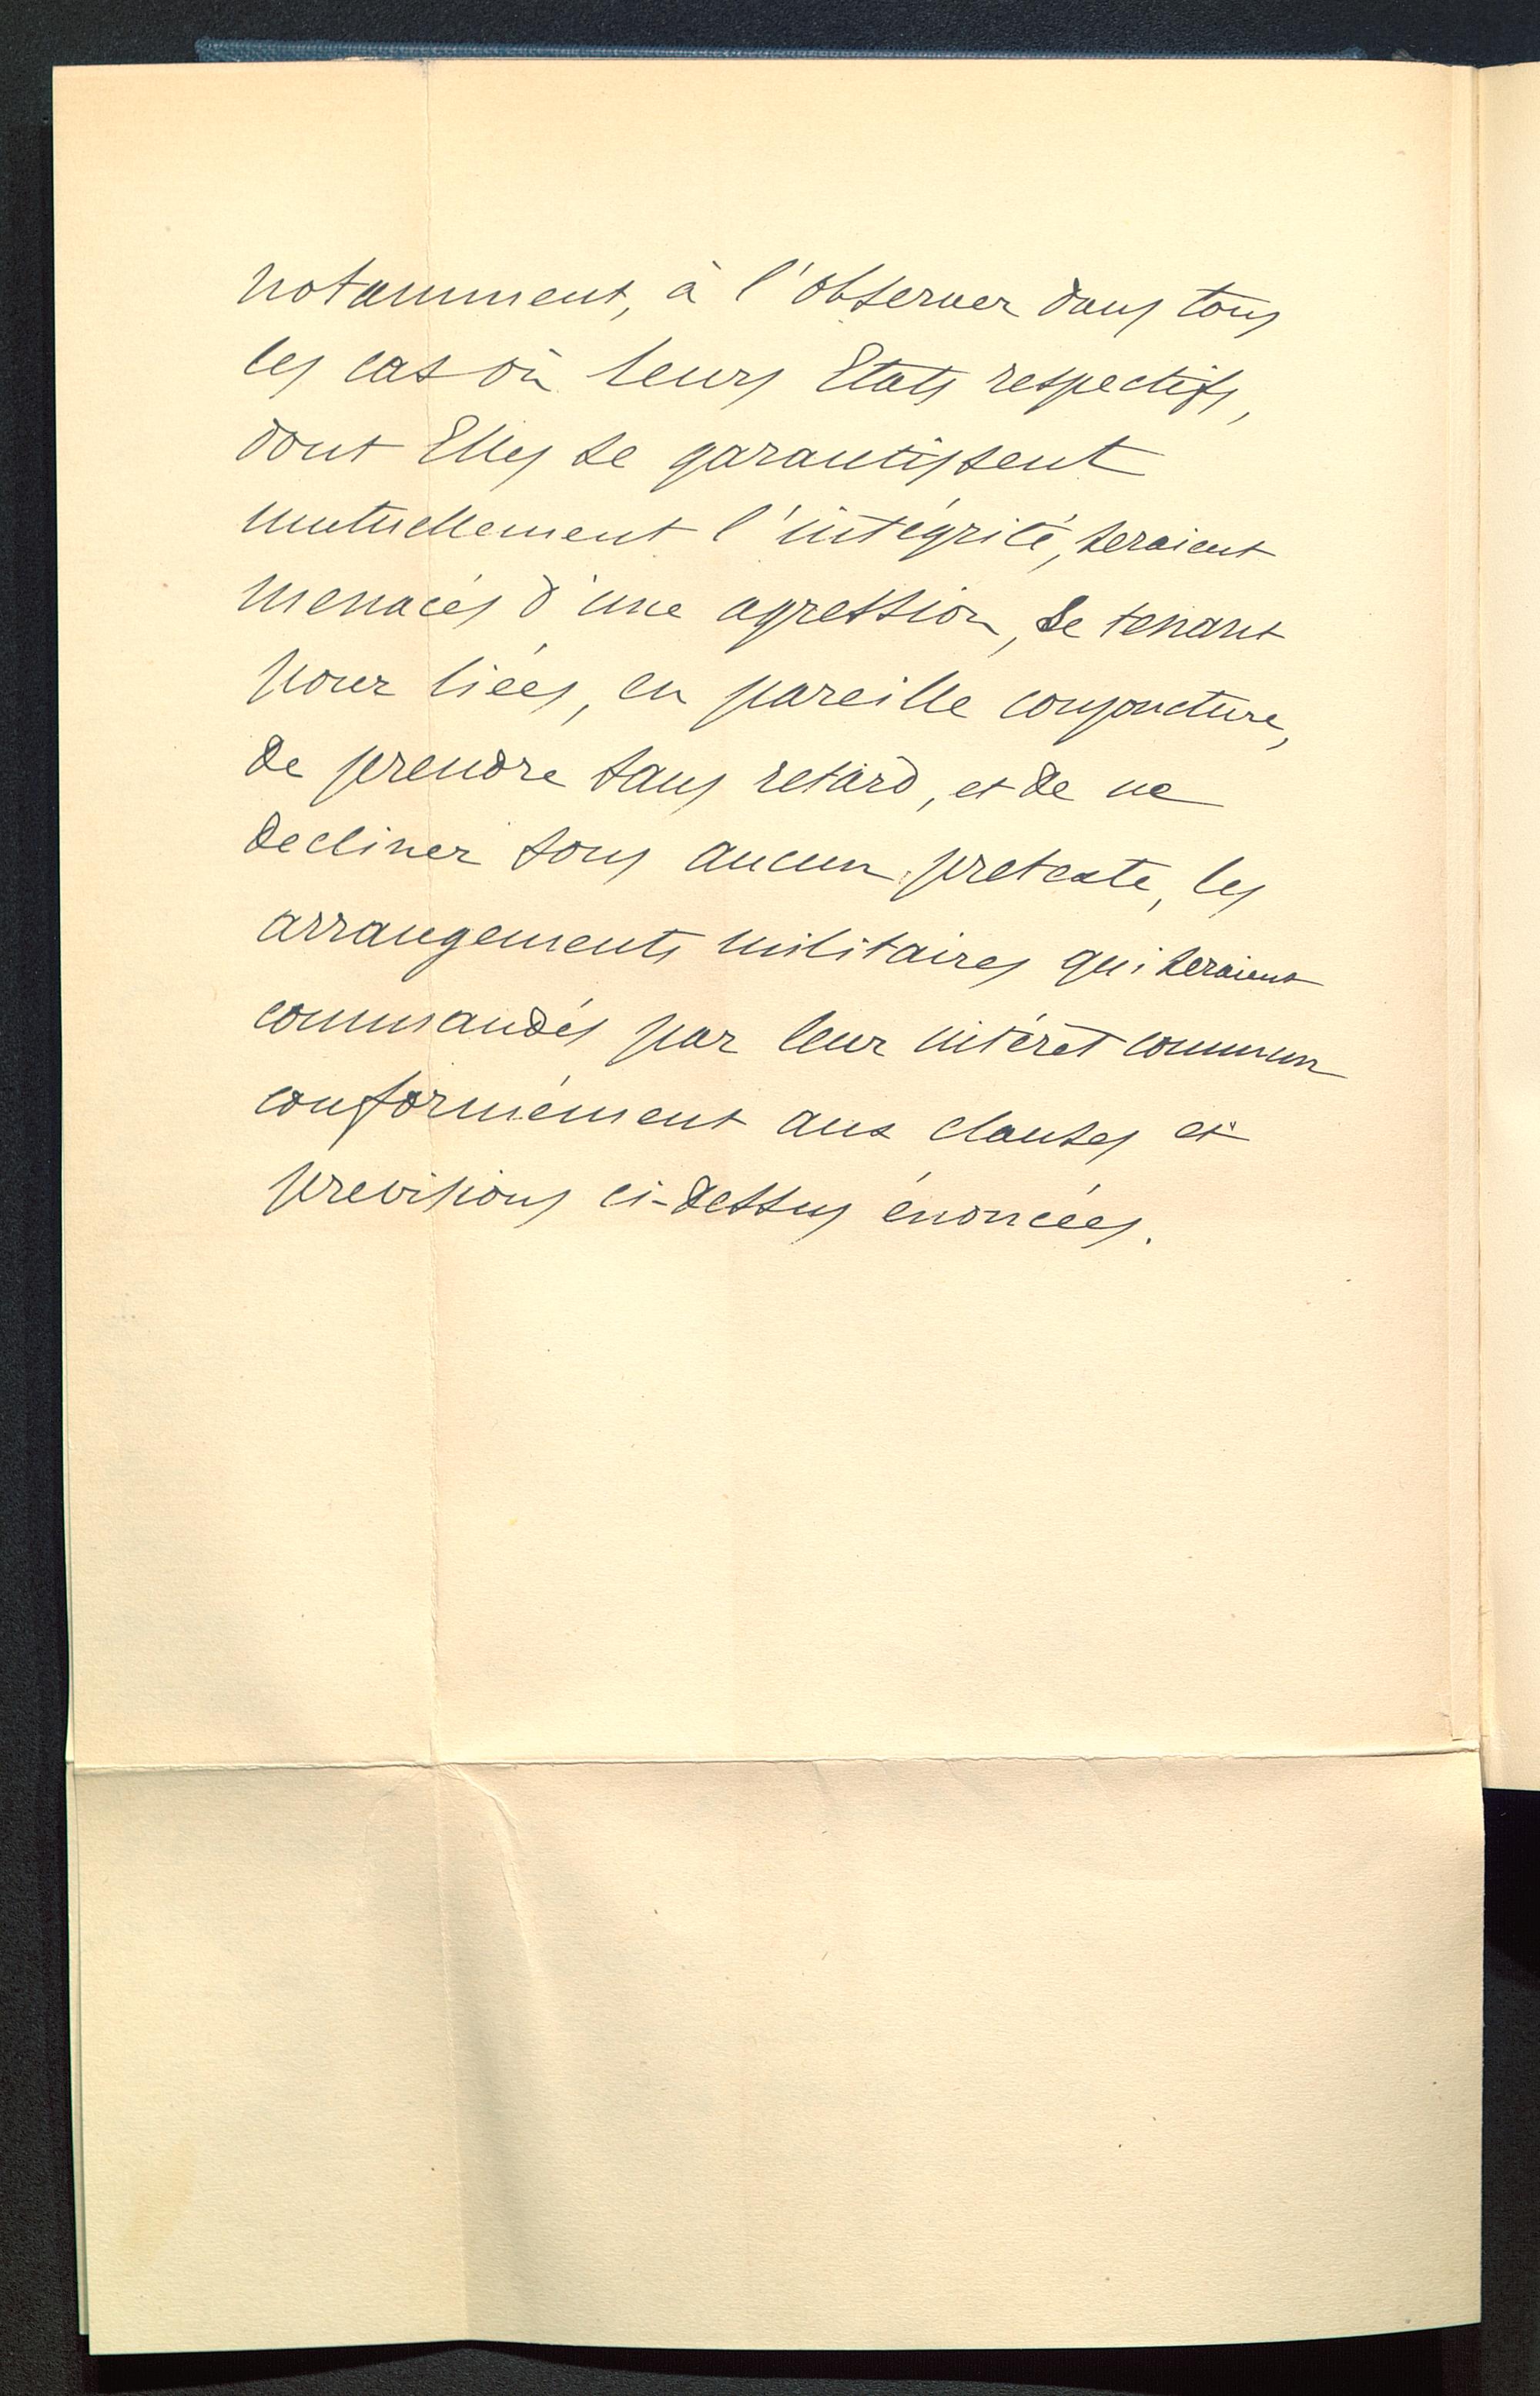 notamment, à l'observer dans tous
les cas où leurs Etats respectifs,
dont Elles se garantissent
mutuellement l'intégrité, seraient
menacés d'une agression, se tenant
pour liées, en pareille conjoncture,
de prendre sans retard, et de ne
decliner sous aucun pretexte, les
arrangements militaires qui seraient
commandés par leur intérêt commun
conformément aux clauses et
previsions ci-dessus énoncées.